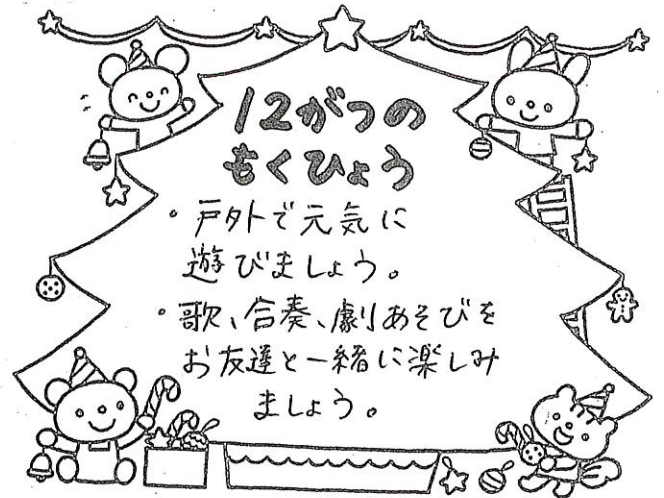 12がつの
もくひょう
・戸外で元気に
遊びましょう。
・歌、合奏、劇あそびを
お友達と一緒に楽しみ
ましょう。